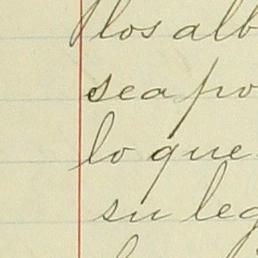 los alb
sea po
lo que
su leg